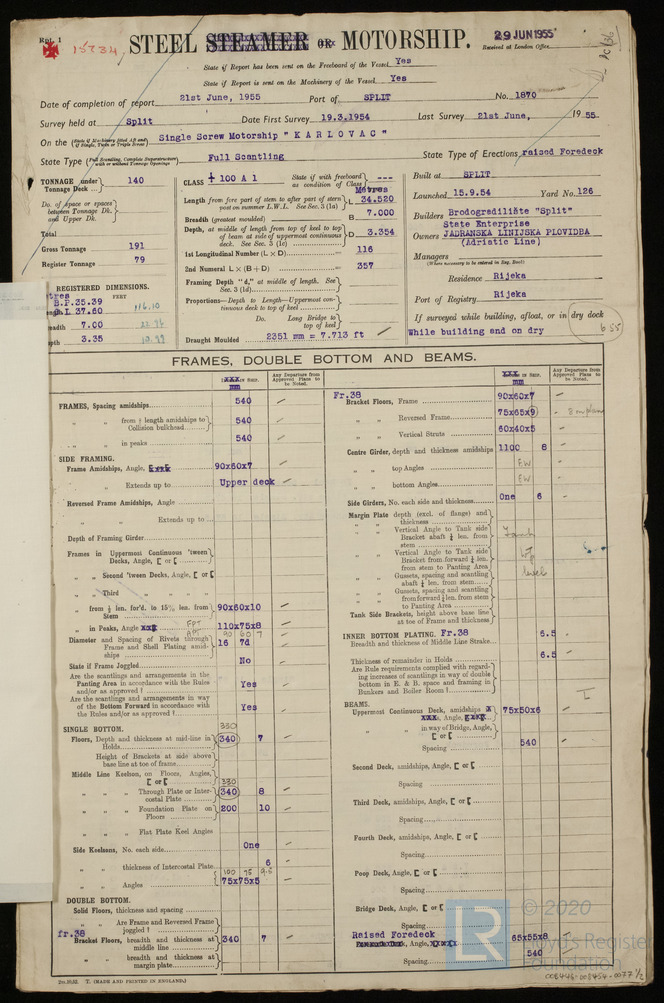 Rpt. 1
15334
STEEL STEAMER OR MOTORSHIP.
29 JUN 1955
Received at London Office
State if Report has been sent on the Freeboard of the Vessel Yes
State if Report is sent on the Machinery of the Vessel Yes
Date of completion of report 21st June, 1955 Port of SPLIT No. 1870
Survey held at Split Date First Survey 19.3.1954 Last Survey 21st June, 1955.
On the (State if Machinery fitted Aft and if Single, Twin or Triple Screw) Single Screw Motorship " K A R L O V A C "
State Type (Full Scantling, Complete Superstructure with or without Tonnage Openings) Full Scantling State Type of Erections raised Foredeck
TONNAGE under Tonnage Deck ... 140
Do. of space or spaces between Tonnage Dk. and Upper Dk.
Total
Gross Tonnage 191
Register Tonnage 79
REGISTERED DIMENSIONS.
FEET
B.P. 35.39 116.10
O.L 37.60
7.00
3.35
CLASS + 100 A 1 State if with freeboard as condition of Class ---
Metres
Length from fore part of stem to after part of stern post on summer L.W.L. See Sec. 3 (1a) L 34.520
Breadth (greatest moulded) B 7.000
Depth, at middle of length from top of keel to top of beam at side of uppermost continuous deck. See Sec. 3 (1c) D 3.354
1st Longitudinal Number (L × D) 116
2nd Numeral L × (B + D) 357
Framing Depth "d," at middle of length. See Sec. 3 (1d)
Proportions—Depth to Length—Uppermost continuous deck to top of keel
Do. Long Bridge to top of keel
Draught Moulded 2351 mm = 7.713 ft
Built at SPLIT
Launched 15.9.54 Yard No. 126
Builders Brodogradilište "Split"
State Enterprise
Owners JADRANSKA LINIJSKA PLOVIDBA
(Adriatic Line)
Managers
(Where necessary to be entered in Reg. Book)
Residence Rijeka
Port of Registry Rijeka
If surveyed while building, afloat, or in dry dock
While building and on dry
FRAMES, DOUBLE BOTTOM AND BEAMS.
mm
Any Departure from Approved Plans to be Noted.
FRAMES, Spacing amidships 540
" " from ½ length amidships to Collision bulkhead 540
" " in peaks 540
SIDE FRAMING.
Frame Amidships, Angle, 90x60x7
" " Extends up to Upper deck
Reversed Frame Amidships, Angle
" " Extends up to
Depth of Framing Girder
Frames in Uppermost Continuous 'tween Decks, Angle, [ or [
" " Second 'tween Decks, Angle, [ or [
" " Third " "
" " from ½ len. for'd. to 15% len. from Stem 90x60x10
" " in Peaks, Angle 110x75x8
FPT
Aft 90 60 7
Diameter and Spacing of Rivets through Frame and Shell Plating amidships 16 7d
State if Frame Joggled No
Are the scantlings and arrangements in the Panting Area in accordance with the Rules and/or as approved ? Yes
Are the scantlings and arrangements in way of the Bottom Forward in accordance with the Rules and/or as approved ? Yes
SINGLE BOTTOM.
330
Floors, Depth and thickness at mid-line in Holds 340 7
Height of Brackets at side above base line at toe of frame
Middle Line Keelson, on Floors, Angles, [ or [
330
" " Through Plate or Intercostal Plate 340 8
" " Foundation Plate on Floors 200 10
" " Flat Plate Keel Angles
Side Keelsons, No. each side One
" " thickness of Intercostal Plate 6
100 75 9.5
" " Angles 75x75x5
DOUBLE BOTTOM.
Solid Floors, thickness and spacing
" " Are Frame and Reversed Frame joggled ?
fr.38
Bracket Floors, breadth and thickness at middle line 340 7
" " breadth and thickness at margin plate
2m.10.52. T. (MADE AND PRINTED IN ENGLAND.)
mm
Any Departure from Approved Plans to be Noted.
Fr.38
Bracket Floors, Frame 90x60x7
" " Reversed Frame 75x65x9
" " Vertical Struts 60x40x5
Centre Girder, depth and thickness amidships 1100 8
" " top Angles EW
" " bottom Angles EW
Side Girders, No. each side and thickness One 6
Margin Plate depth (excl. of flange) and thickness
" " Vertical Angle to Tank side Bracket abaft ¼ len. from stem
" " Vertical Angle to Tank side Bracket from forward ¼ len. from stem to Panting Area
" " Gussets, spacing and scantling abaft ¼ len. from stem
" " Gussets, spacing and scantling from forward ¼ len. from stem to Panting Area
Tank Side Brackets, height above base line at toe of Frame and thickness
Tank
top
level
INNER BOTTOM PLATING. Fr.38
Breadth and thickness of Middle Line Strake 6.5
Thickness of remainder in Holds 6.5
Are Rule requirements complied with regarding increases of scantlings in way of double bottom in E. & B. space and framing in Bunkers and Boiler Room ?
BEAMS.
Uppermost Continuous Deck, amidships Angle, 75x50x6
" " in way of Bridge, Angle, [ or [
Spacing 540
Second Deck, amidships, Angle, [ or [
Spacing
Third Deck, amidships, Angle, [ or [
Spacing
Fourth Deck, amidships, Angle, [ or [
Spacing
Poop Deck, Angle, [ or [
Spacing
Bridge Deck, Angle, [ or [
Spacing
Raised Foredeck 65x55x8
Spacing 540
LR
© 2020
Lloyd's Register
Foundation
008448-008454-0077 1/2